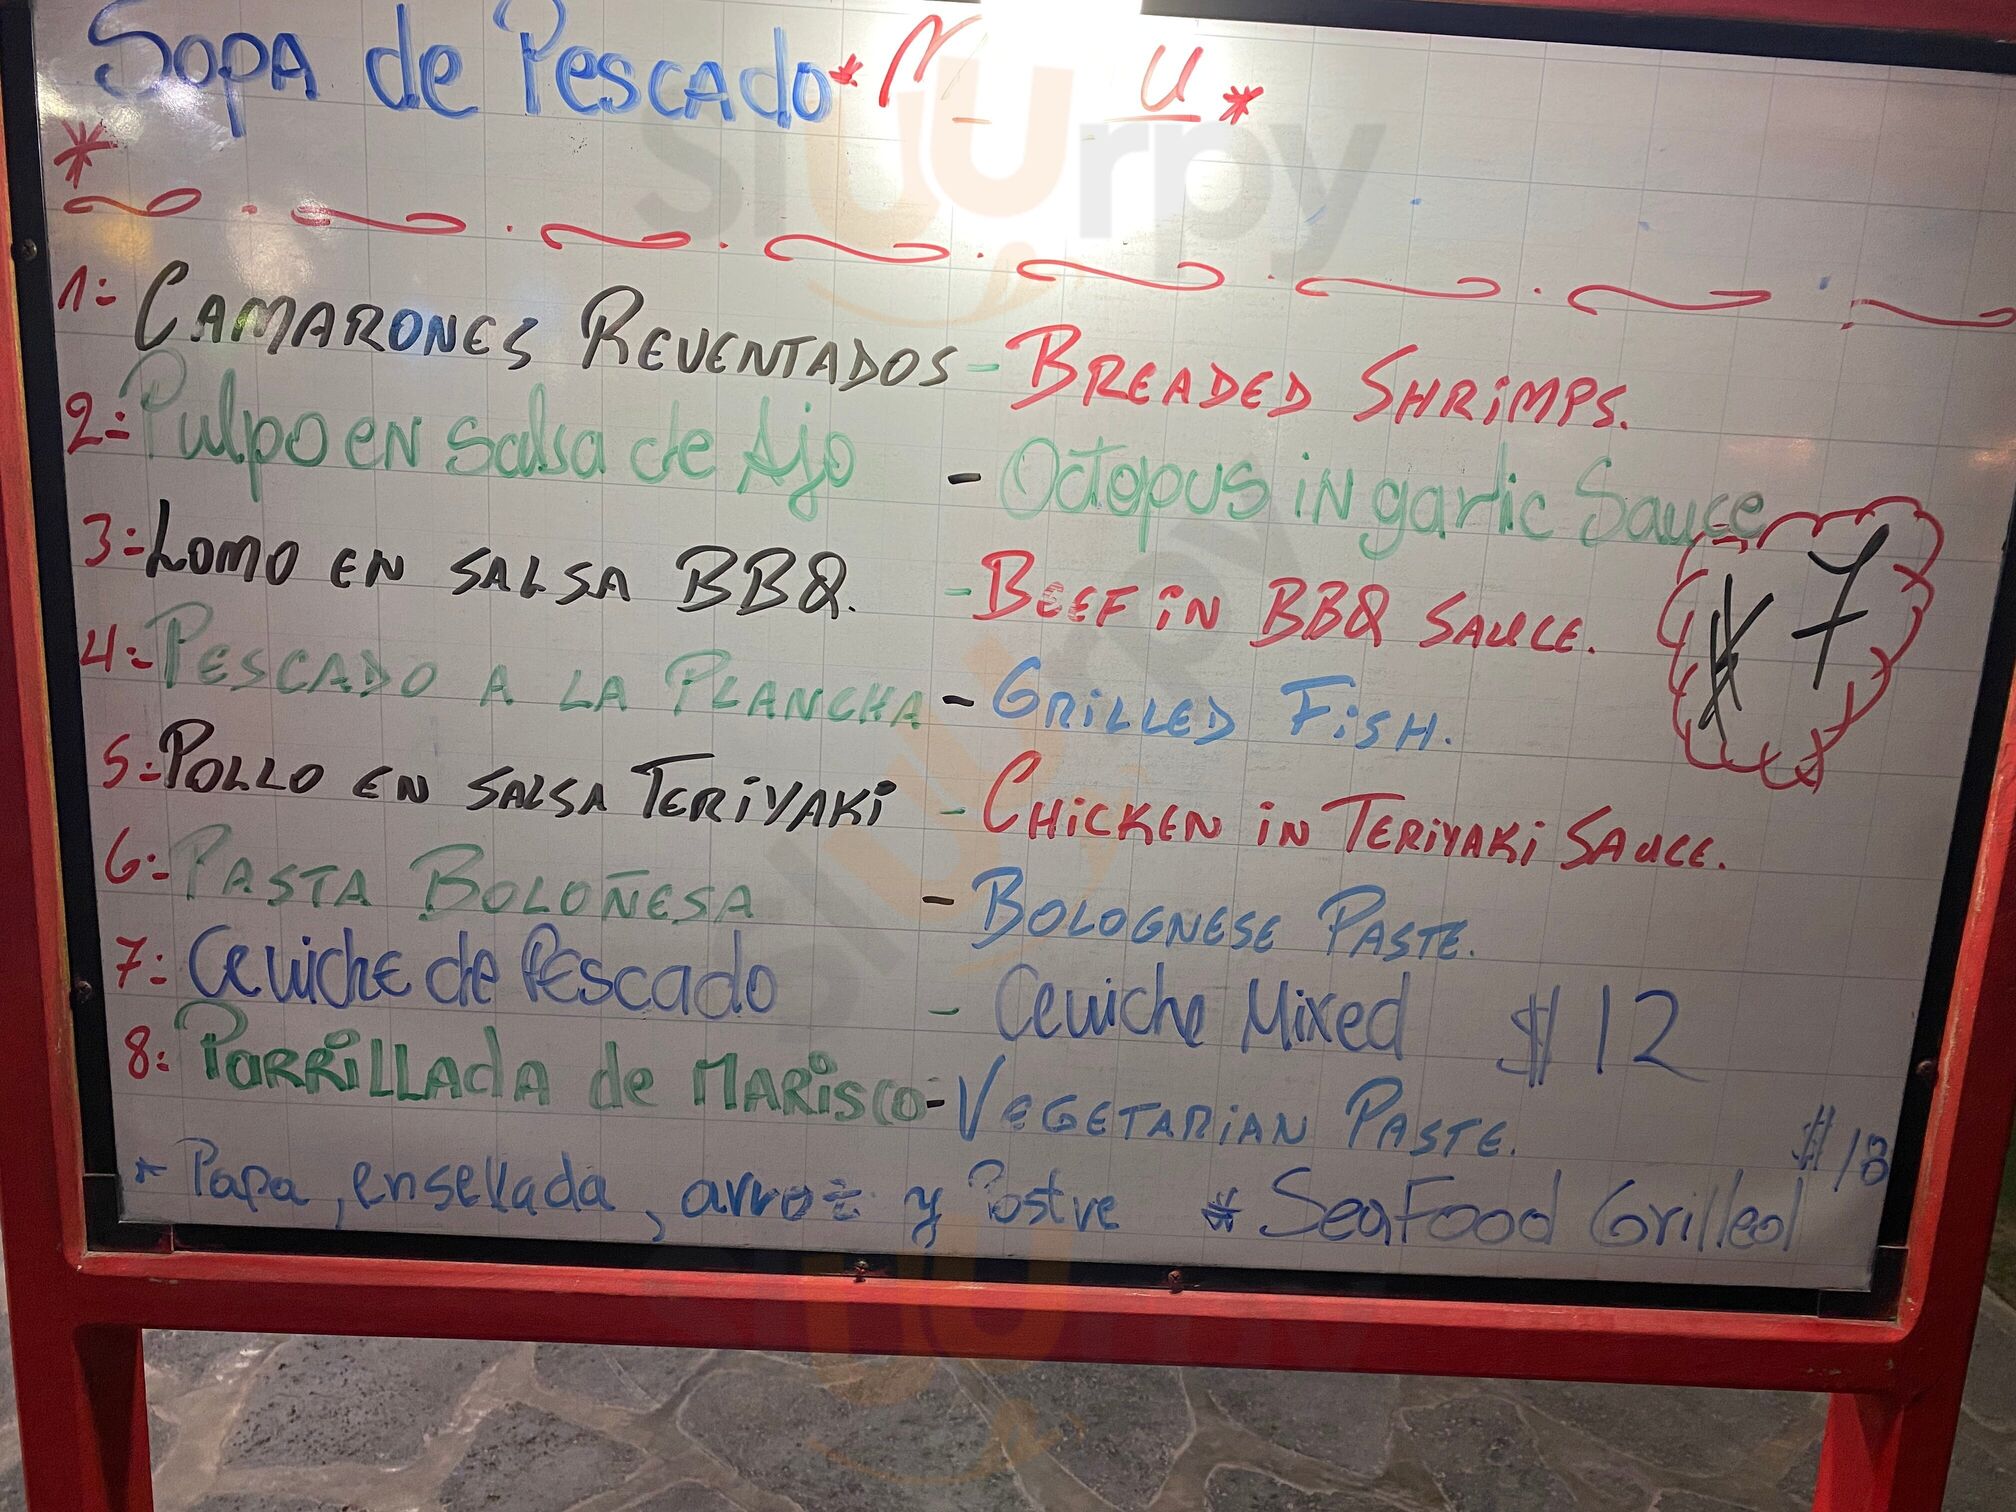 Sopa de Pescado * M U *
*
1= CAMARONES REVENTADOS - BREADED SHRIMPS.
2= Pulpo en salsa de Ajo - Octopus in garlic Sauce
3= LOMO EN SALSA BBQ. - BEEF iN BBQ SAUCE.
$ 7
4= PESCADO A LA PLANCHA - GRILLED FiSH.
5= POLLO EN SALSA TERiYAKi - CHiCKEN iN TERiYAKi SAUCE.
6= PASTA BOLOÑESA - BOLOGNESE PASTE.
7= Ceviche de Pescado - Ceviche Mixed $ 12
8= PARRiLLAdA de MARisco - VEGETARiAN PASTE.
* Papa, ensellada, arroz y Postre * SeaFood Grilled $ 18
sluurpy
sluurpy
sluurpy